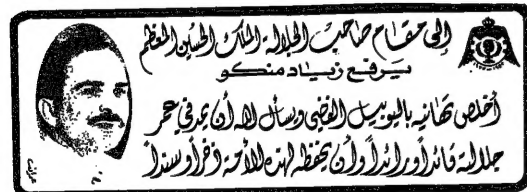 إلى مقام صاحب الجلالة الملك الحسين المعظم
يرفع زياد منكو
أخلص تهانيه باليوبيل الفضي ويسأل الله أن يمد في عمر
جلالته قائداً ورائداً وأن يحفظه لهذه الأمة ذخراً وسنداً